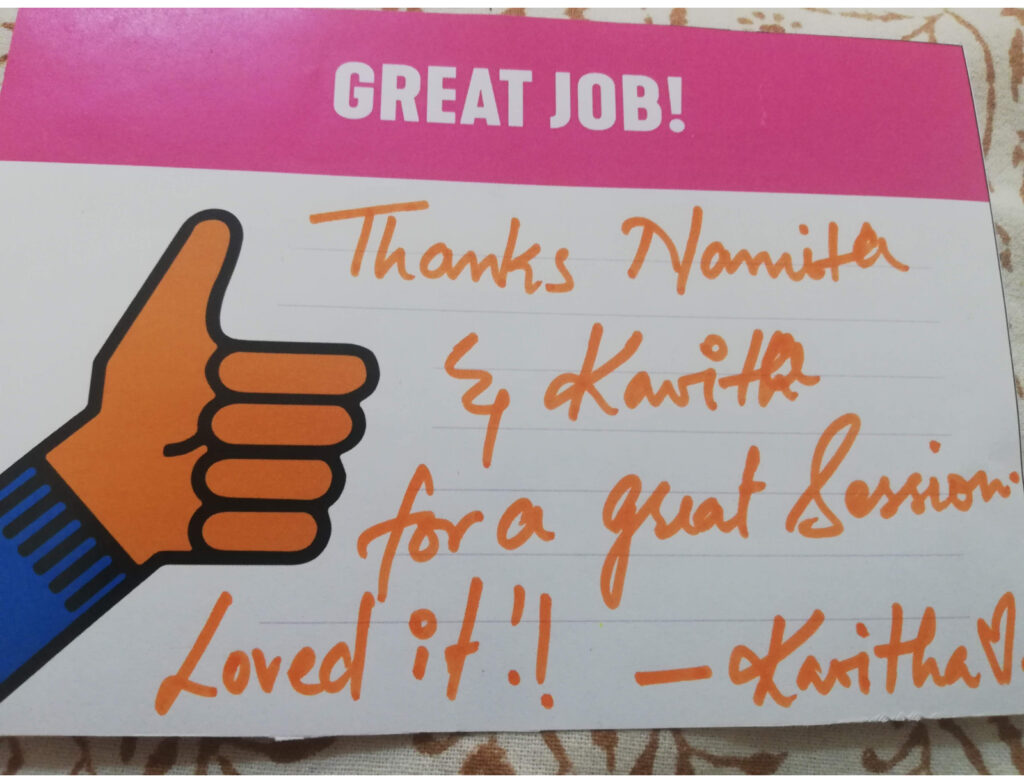 GREAT JOB!
Thanks Namita
& Kavitha
for a great Session.
Loved it!!
- Kavitha♡.